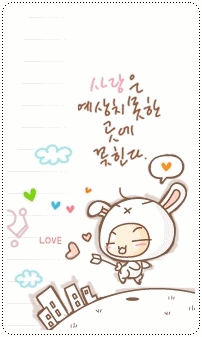 사랑은
예상치 못한
곳에
꽂힌다.
LOVE